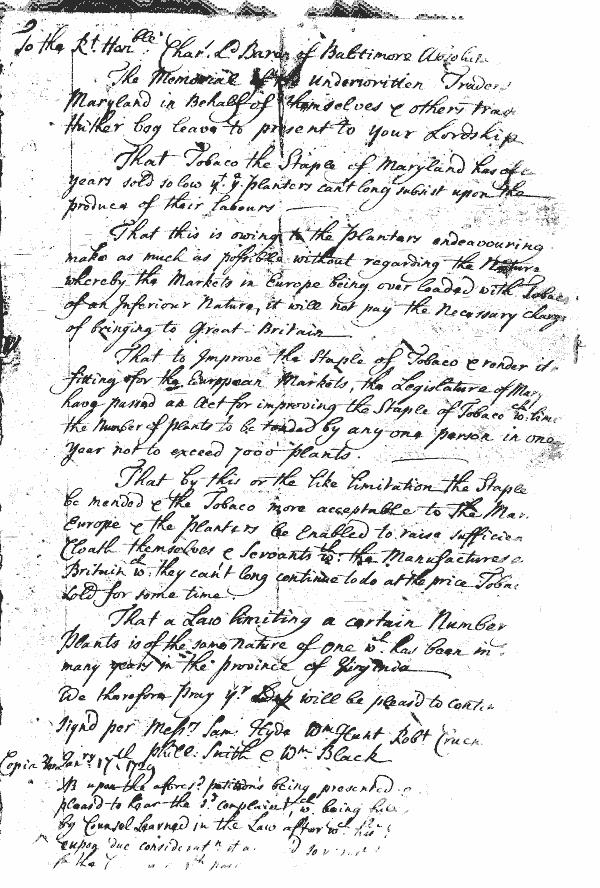 To the Rt. Honble. Char. Ld Baron of Baltimore Absolute
The Memorial of the Underwritten Traders
Maryland in Behalf of themselves & others trad
thither beg leave to present to your Lordship
That Tobaco the Staple of Maryland has of
years sold so low yt. ye. planters can't long subsist upon the
produce of their labours
That this is owing to the planters endeavouring
make as much as possible without regarding the Nature
whereby the Markets in Europe being over loaded with Tobac
of an Inferiour Nature, it will not pay the Necessary charg
of bringing to Great Britain
That to Improve the Staple of Tobaco & render it
fitting for the European Markets, the Legislature of Mary
have passed an Act for improving the Staple of Tobaco wch. lim
the Number of plants to be tended by any one person in one
Year not to exceed 7000 plants
That by this or the like limitation the Staple
be mended & the Tobaco more acceptable to the Mar
Europe & the planters be Enabled to raise sufficien
Cloath themselves & Servants wth. the Manufactures o
Britain wch. they can't long continue to do at the price Tobac
sold for some time
That a Law limiting a certain Number
Plants is of the same Nature of one wt. has been in
many years in the province of Virginia
We therefore pray yr. Ldp will be pleasd to contin
Signd per Messrs Sam. Hyde Wm Hunt Robt Cruck
Phill: Smith & Wm Black
Copia Jan:ry 17th. 1729
NB upon the aforesd. petitions being presented
pleasd to hear the sd. complaint, wch. being
by Counsel Learned in the Law after wch. his
upon due considerat
for the